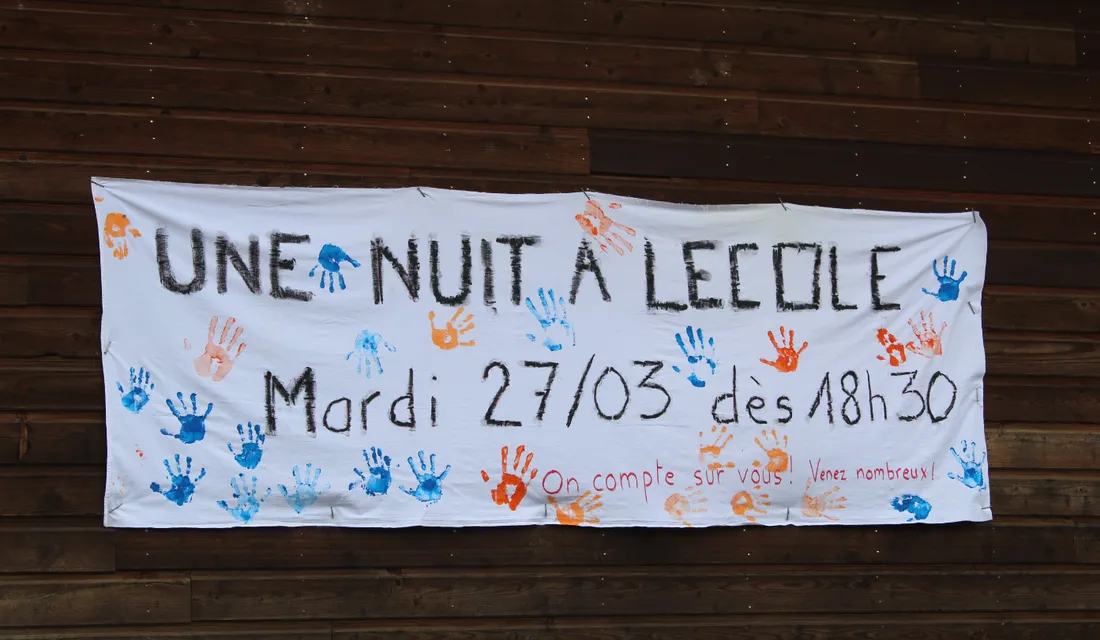 UNE NUIT A LECOLE
Mardi 27/03 dès 18h30
On compte sur vous! Venez nombreux!